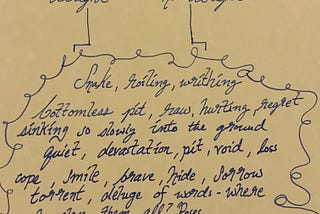 Snake, roiling, writhing
bottomless pit, raw, hurting, regret
sinking so slowly into the ground
quiet, devastation, pit, void, loss
cope, smile, brave, hide, sorrow
torrent, deluge of words - where
them all?